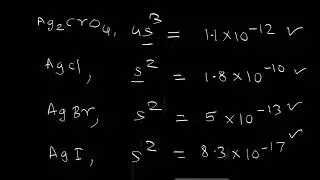 Ag₂CrO₄, 4s³ = 1.1 × 10⁻¹² ✓
AgCl, s² = 1.8 × 10⁻¹⁰ ✓
AgBr, s² = 5 × 10⁻¹³ ✓
AgI, s² = 8.3 × 10⁻¹⁷ ✓